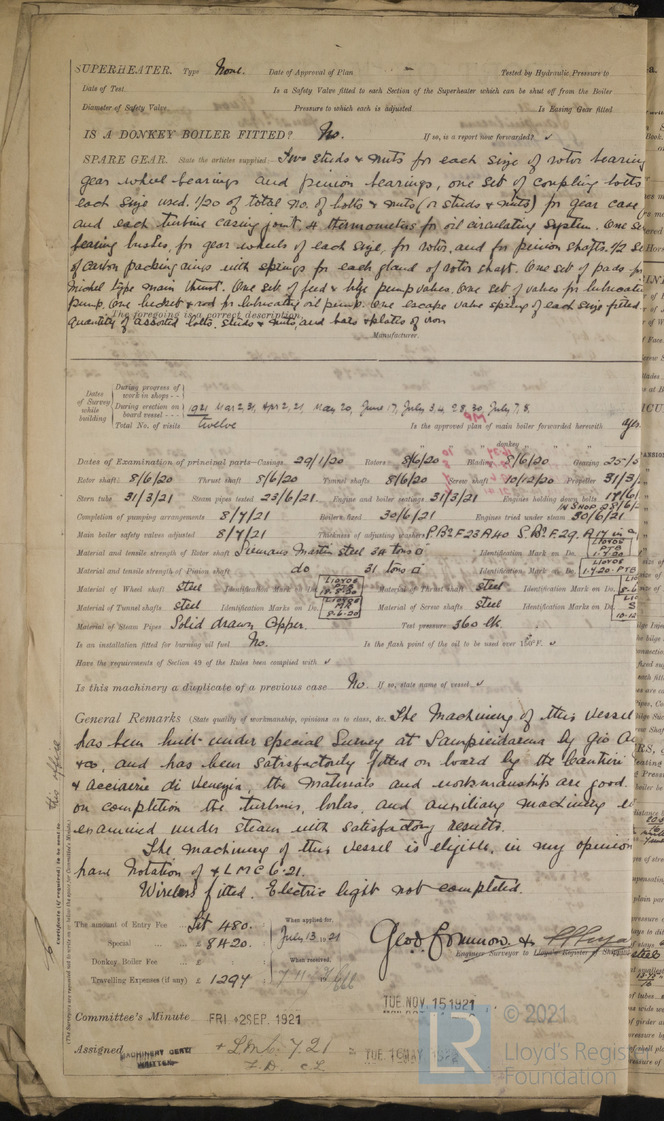 SUPERHEATER. Type None. Date of Approval of Plan Tested by Hydraulic Pressure to
Date of Test Is a Safety Valve fitted to each Section of the Superheater which can be shut off from the Boiler
Diameter of Safety Valve Pressure to which each is adjusted Is Easing Gear fitted
IS A DONKEY BOILER FITTED? No. If so, is a report now forwarded?
SPARE GEAR. State the articles supplied:- Two studs & nuts for each size of rotor bearing
gear wheel bearings and pinion bearings, one set of coupling bolts
each size used. 1/20 of total No. of bolts & nuts (or studs & nuts) for gear case,
and each turbine casing joint. 4 thermometers for oil circulating system. One se
bearing bushes, for gear wheels of each size, for rotor, and for pinion shafts. 1/2 se
of carbon packing rings with springs for each gland of rotor shaft. One set of pads for
michel type main thrust. One set of feed & bilge pump valves. One set of valves for lubricatin
pump. One bucket & rod for lubricating oil pump. One escape valve spring of each size fitted.
quantity of assorted bolts, studs & nuts, and bars & plates of iron
The foregoing is a correct description,
Manufacturer.
Dates of Survey while building
During progress of work in shops - -
During erection on board vessel - - - 1921 Mar 2, 31, Apr 2, 21, May 20, June 17, July 3, 4, 28, 30, July 7, 8.
Total No. of visits twelve Is the approved plan of main boiler forwarded herewith yes
" " " donkey " " "
Dates of Examination of principal parts—Casings 29/1/20 Rotors 8/6/20 Blading 8/6/20 Gearing 25/5
Rotor shaft 8/6/20 Thrust shaft 8/6/20 Tunnel shafts 8/6/20 Screw shaft 10/12/20 Propeller 31/3/
Stern tube 31/3/21 Steam pipes tested 23/6/21 Engine and boiler seatings 31/3/21 Engines holding down bolts 17/6/
IN SHOP 28/6/2
Completion of pumping arrangements 8/7/21 Boilers fixed 30/6/21 Engines tried under steam 30/6/21
Main boiler safety valves adjusted 8/7/21 Thickness of adjusting washers P. Br F 23 A 40 S. Br F. 29. A
Material and tensile strength of Rotor shaft Siemens Martin steel 34 tons □ Identification Mark on Do. LLOYDS PTB 1.4.20
Material and tensile strength of Pinion shaft do 31 tons □ Identification Mark on Do. LLOYDS 1.4.20. PTB
Material of Wheel shaft steel Identification Mark on Do. LLOYDS Material of Thrust shaft steel Identification Mark on Do. 8-6
Material of Tunnel shafts steel Identification Marks on Do. LLOYDS 8-6-20 Material of Screw shafts steel Identification Marks on Do. 10-12
Material of Steam Pipes Solid drawn Copper. Test pressure 360 lb.
Is an installation fitted for burning oil fuel No. Is the flash point of the oil to be used over 150°F.
Have the requirements of Section 49 of the Rules been complied with
Is this machinery a duplicate of a previous case No. If so, state name of vessel
General Remarks (State quality of workmanship, opinions as to class, &c. The Machinery of this Vessel
has been built under special Survey at Sampierdarena by Gio An
& Co, and has been satisfactorily fitted on board by the Cantieri
& Acciaerie di Venezia, the Materials and workmanship are good.
on completion the turbines, boilers, and auxiliary machinery
examined under steam with satisfactory results.
The machinery of this vessel is eligible, in my opinion
have Notation of + LMC 6.21.
Wireless fitted. Electric light not completed.
Certificate (if required) to be sent to this office
The amount of Entry Fee Lit 480.
Special £ 8420.
Donkey Boiler Fee £
Travelling Expenses (if any) £ 1294
When applied for, July 13. 21
When received,
Geo.
Engineer Surveyor to Lloyd's Register of Shipp
Committee's Minute FRI. 2 SEP. 1921
TUE NOV. 15 1921
Assigned + LMC 7.21
TUE. 16 MAY 1922
F.D. C.L.
MACHINERY CERT. WRITTEN.
LR
© 2021
Lloyd's Register
Foundation